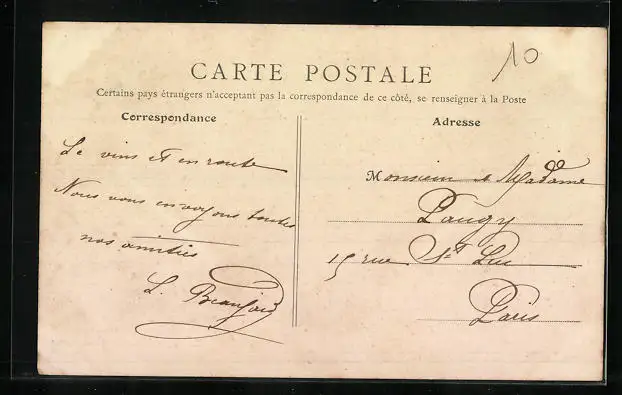 10
CARTE POSTALE
Certains pays étrangers n'acceptant pas la correspondance de ce côté, se renseigner à la Poste
Correspondance
Adresse
Le vins est en route
Nous vous envoyons toutes
nos amitiés
L.
Monsieur & Madame
15 rue St Luc
Paris